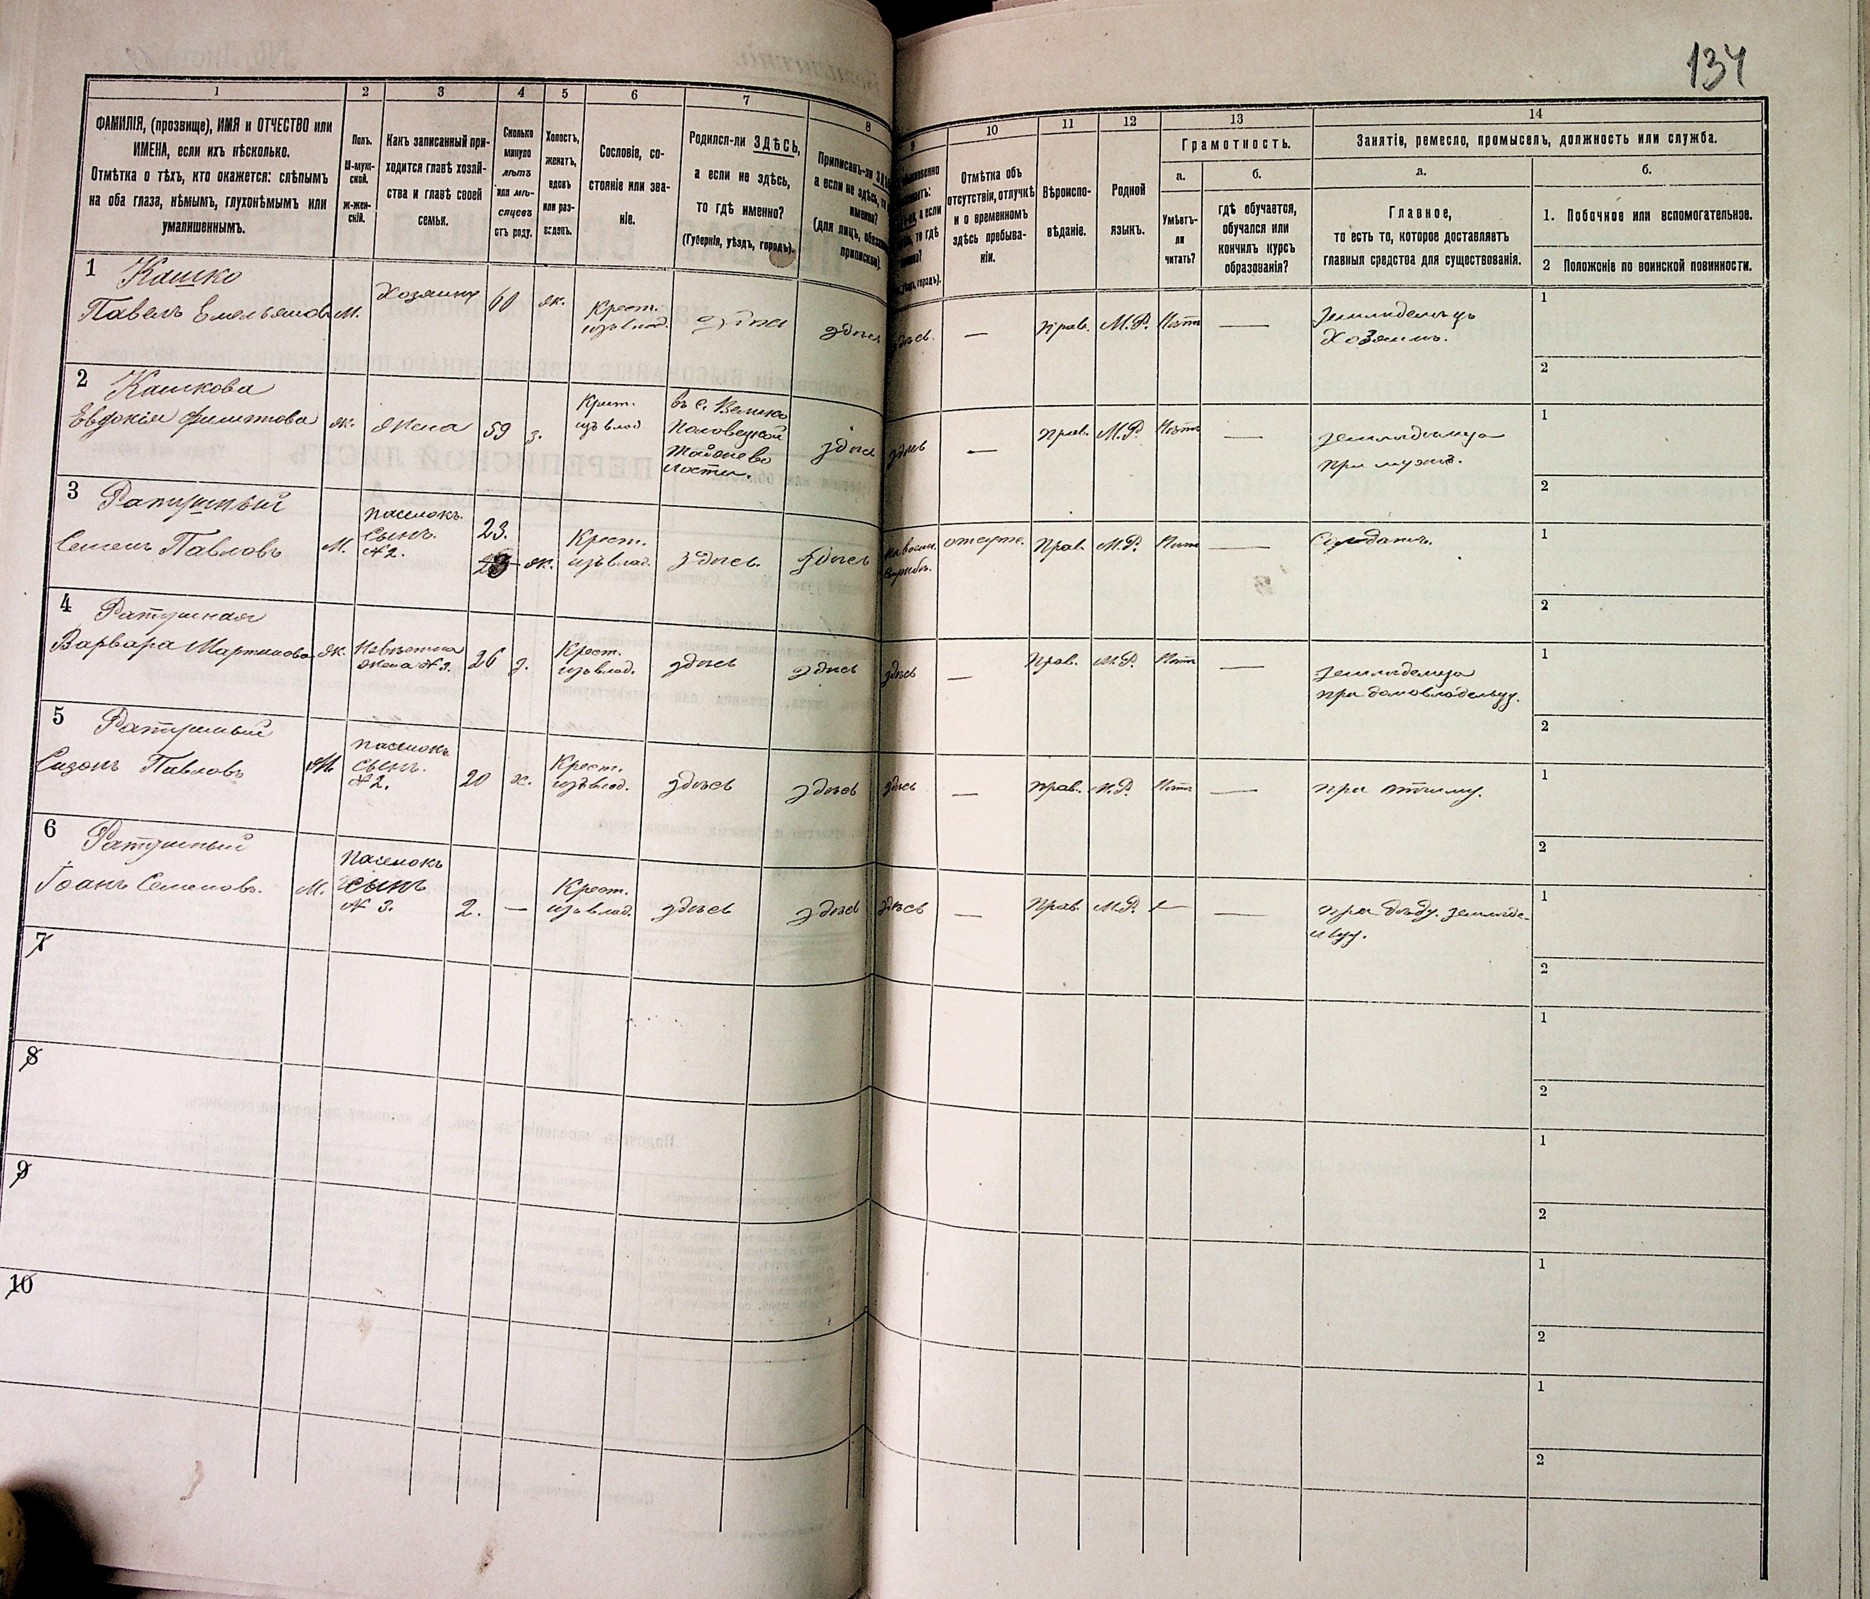 134
1 2 3 4 5 6 7 8
9 10 11 12 13 14
ФАМИЛІЯ, (прозвище), ИМЯ и ОТЧЕСТВО или
ИМЕНА, если ихъ нѣсколько.
Отмѣтка о тѣхъ, кто окажется: слѣпымъ
на оба глаза, нѣмымъ, глухонѣмымъ или
умалишеннымъ.
Полъ.
М-муж-
ской.
ж-жен-
скій.
Какъ записанный при-
ходится главѣ хозяй-
ства и главѣ своей
семьи.
Сколько
минуло
лѣтъ
или мѣ-
сяцевъ
отъ роду.
Холостъ,
женатъ,
вдовъ
или раз-
веденъ.
Сословіе, со-
стояніе или зва-
ніе.
Родился-ли ЗДѢСЬ,
а если не здѣсь,
то гдѣ именно?
(Губернія, уѣздъ, городъ).
Приписанъ-ли
а если не здѣсь, то
именно?
(для лицъ,
припискѣ).
Отмѣтка объ
отсутствіи, отлучкѣ
и о временномъ
здѣсь пребыва-
ніи.
Вѣроиспо-
вѣданіе.
Родной
языкъ.
Грамотность.
а.
Умѣетъ-
ли
читать?
б.
гдѣ обучается,
обучался или
кончилъ курсъ
образованія?
Занятіе, ремесло, промыселъ, должность или служба.
а.
Главное,
то есть то, которое доставляетъ
главныя средства для существованія.
б.
1. Побочное или вспомогательное.
2 Положеніе по воинской повинности.
1 Кашко
Павелъ Емельяновъ М. Хозяинъ 60 ж. Крест. изъ влад. здѣсь здѣсь здѣсь — Прав. М.Р. Нѣтъ — Земледѣлецъ
Хозяинъ.
1
2
2 Кашкова
Евдокія Филипова ж. жена 59 з. Крест. изъ влад въ с. Велико
Половецкой
здѣсь здѣсь — Прав. М.Р. Нѣтъ —
при мужѣ.
1
2
3 Ратушный
Семенъ Павловъ М. пасынокъ.
сынъ.
№2. 23. ж. Крест. изъ влад. здѣсь. здѣсь отсутс. Прав. М.Р. — Солдатъ.
1
2
4 Ратушная
Варвара Мартинова ж. Невѣстка
жена №3. 26 з. Крест. изъ влад. здѣсь здѣсь здѣсь — Прав. М.Р. Нѣтъ —
при домовладельцу.
1
2
5 Ратушный
Сазонъ Павловъ М. пасынокъ
сынъ.
№2. 20 х. Крест. изъ влад. здѣсь здѣсь здѣсь — Прав. М.Р. Нѣтъ — при отчиму.
1
2
6 Ратушный
Іоанъ Семеновъ. М. Пасынокъ
сынъ
№ 3. 2. — Крест. изъ влад. здѣсь здѣсь здѣсь — Прав. М.Р. — — при дѣду земледе-
льцу.
1
2
7
1
2
8
1
2
9
1
2
10
1
2